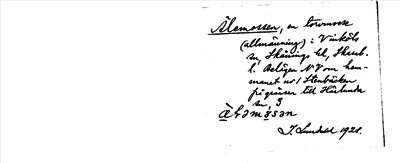 Ålemossen, en torvmosse
(allmänning) i Vinköls
sn, Skånings hd, Skarab.
l. Belägen NV om hem-
manet nr 1 Stenbäcken
på gränsen till Härlunda
sn,
J. Lundahl 1928.